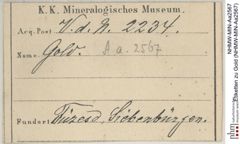 K. K. Mineralogisches Museum.
Acq. Post V. d. N. 2234.
Name Gold. Aa. 2567
Fundort Füzesd, Siebenbürgen.
nhm
Etiketten zu Gold (NHMW-MIN-Aa2567)
NHMW-MIN-Aa2567